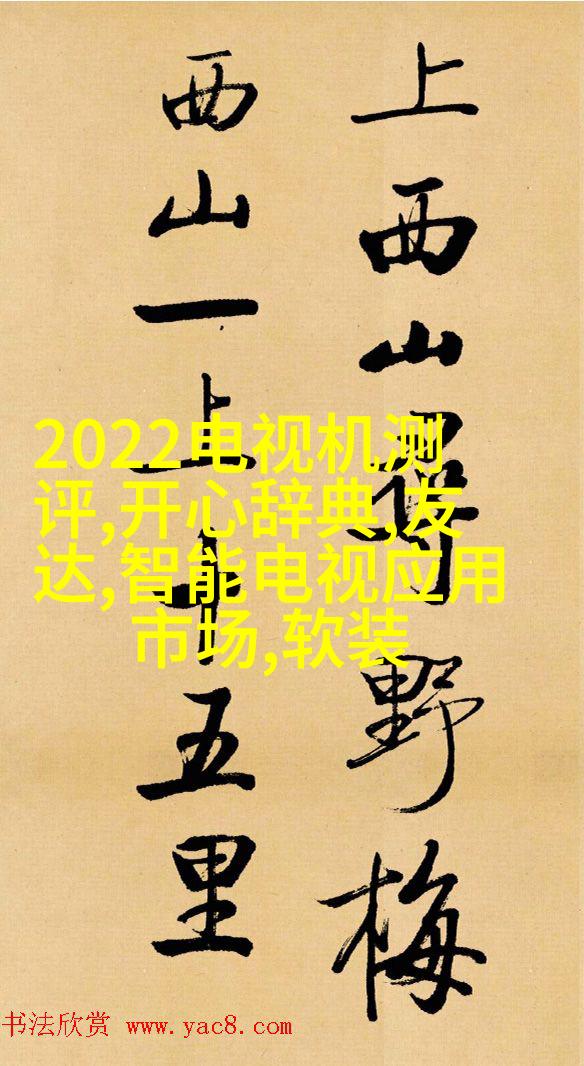 上西山尋野梅
西山一上十五里
2022电视机测
评,开心辞典,友
达,智能电视应用
市场,软装
书法欣赏 www.yac8.com